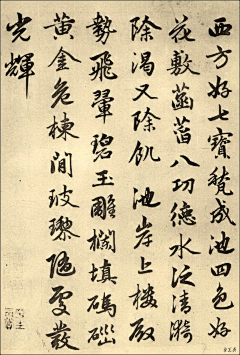 西方好七寶甃成池四色好
花敷菡萏八功德水泛清漪
除渴又除飢池岸上樓殿
勢飛翬碧玉雕欄填碼碯
黄金危棟間玻瓈隨處發
光輝